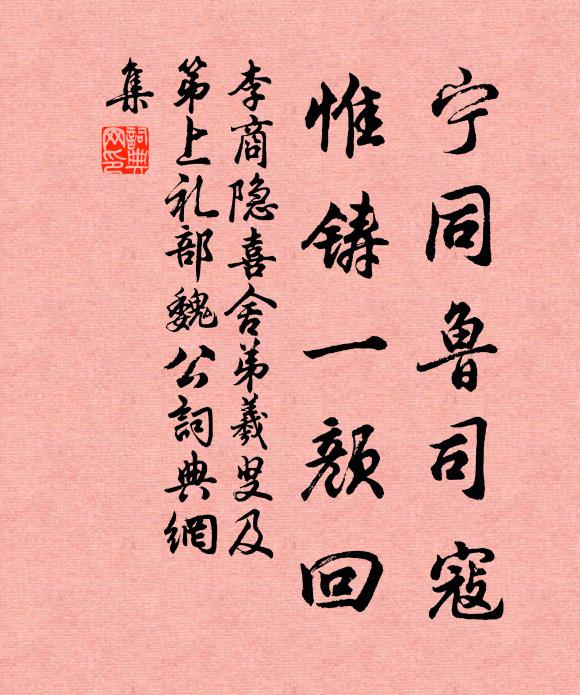 宁同鲁司寇
惟铸一颜回
李商隐喜舍弟羲叟及
第上礼部魏公詞典網
集
詞典網印